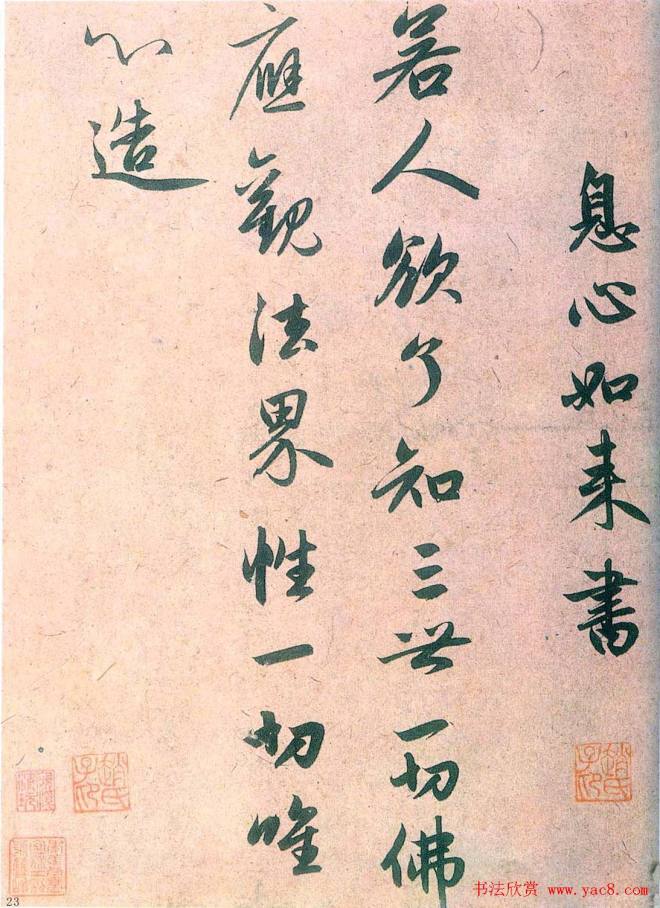 息心如来書
若人欲了知三世一切佛
應觀法界性一切唯
心造
趙氏子昂
趙氏子昂
23
书法欣赏 www.yac8.com